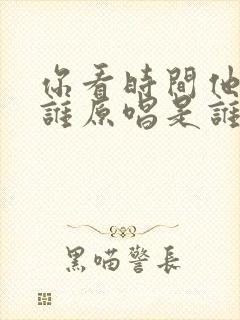 你看時間他
誰原唱是誰
黑喵警長